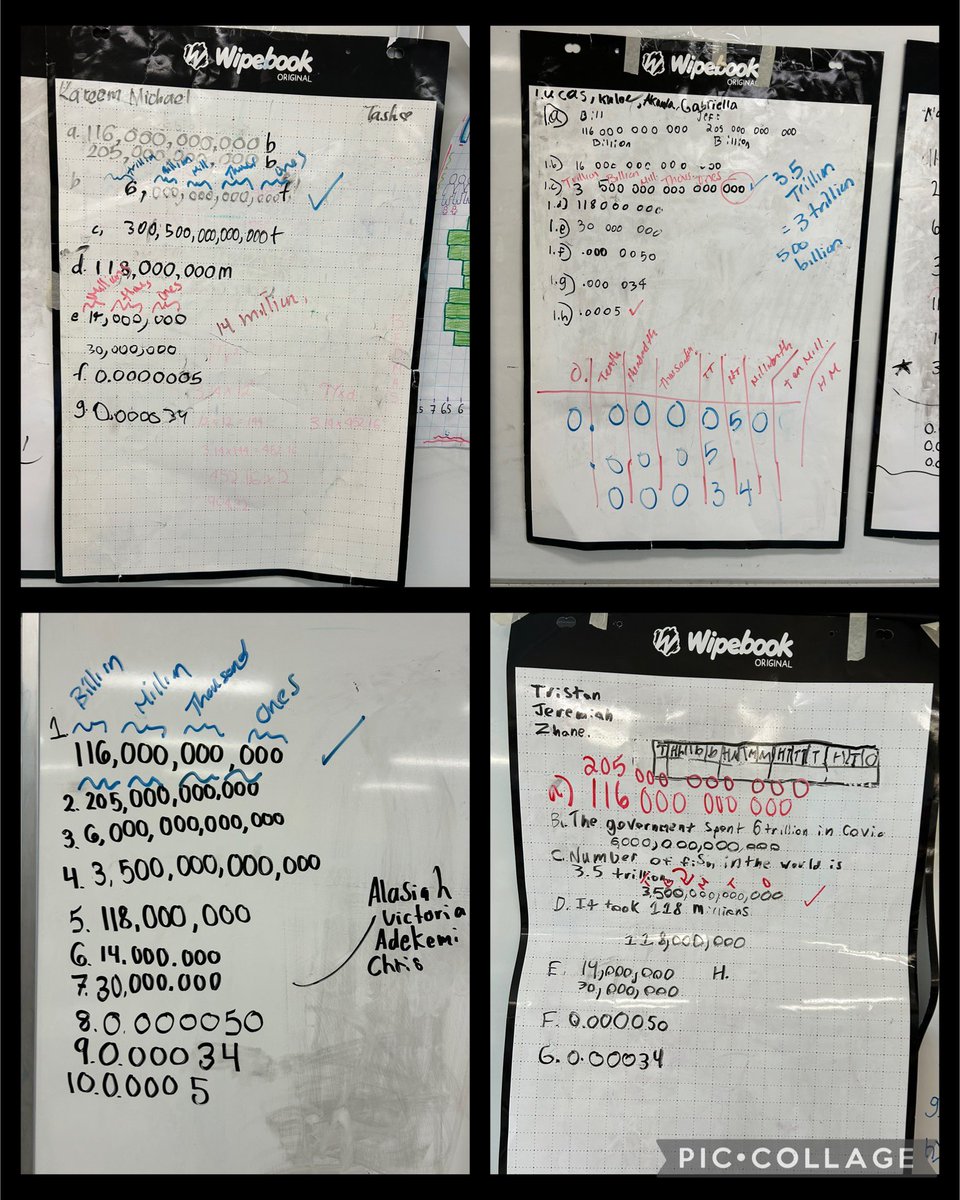 Wipebook
ORIGINAL
Kareem Michael
Tasha
a. 116,000,000,000 b
205,000,000,000 b
Trillin Billion Mill. Thous Ones
b. 6,000,000,000,000 t
c, 300,500,000,000,000 t
d. 118,000,000m
Millions Thous Ones
e. 14,000,000
14 million,
30,000,000
f. 0.0000005
g. 0.000034
Wipebook
ORIGINAL
Lucas, Khloe, Gabriella
1.a) Bill Jef:
116 000 000 000 205 000 000 000
Billion Billion
1.b) 16 000 000 000 000
Trillion Billion Mill Thous Ones
1.c) 3 500 000 000 000 000
3.5
Trillion
= 3 trillion
500
billion
1.d) 118 000 000
1.e) 30 000 000
1.f) .000 0050
1.g) .000 034
1.h) .0005
0. Tenth Hundredth Thousandth TT HT Millionth Ten Mill. HM
0. 0 0 0 0 5 0
. 0 0 0 5
0 0 0 3 4
Billin Millin Thousand Ones
1
116,000,000,000
2. 205,000,000.000
3. 6,000,000,000,000
4. 3,500,000,000,000
5. 118,000,000
6. 14.000.000
7. 30,000.000
8. 0.000050
9. 0.00034
10. 0.00005
Alasiah
Victoria
Adekemi
Chris
Wipebook
ORIGINAL
Tristan
Jeremiah
Zhane.
205 000 000 000
a) 116 000 000 000
B. The government spent 6 trillion in Covid
6000,000,000,000
C. Number of fish in the world is
3.5 trillion
T B M T O
3,500,000,000,000
D. It took 118 millions
118,000,000
E. 14,000,000 H.
30,000,000
F. 0.000050
G. 0.00034
PIC•COLLAGE